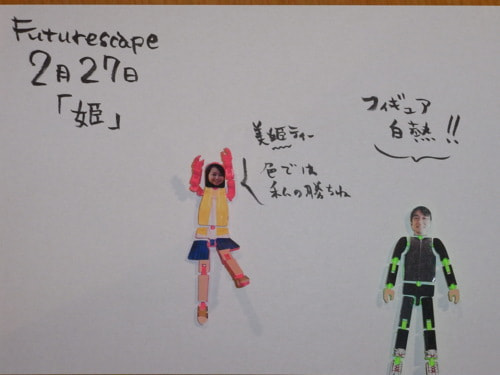 Futurescape
2月27日
「姫」
美姫ティー
色では
私の勝ちね
フィギュア
白熱!!